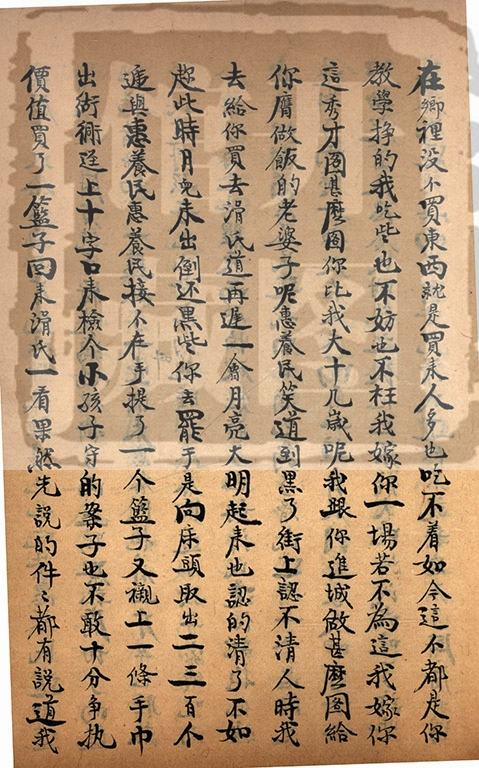 在鄉裡没个買東西就是買来人多也吃不着如今這不都是你
教學挣的我吃些也不妨也不枉我嫁你一場若不為這我嫁你
這秀才圖甚麽圖你比我大十几嵗呢我跟你進城做甚麽圖給
你膺做飯的老婆子呢惠養民笑道到黒了街上認不清人時我
去給你買去滑氏道再遲一會月亮大明起来也認的清了不如
趂此時月児未出倒还黒些你去罷于是向床頭取出二三百个
逓與惠養民惠養民接个在手提了一个籃子又襯上一條手巾
出衚衕逕上十字口来檢个小孩子守的案子也不敢十分争执
價值買了一籃子回来滑氏一看果然先説的件〻都有説道我